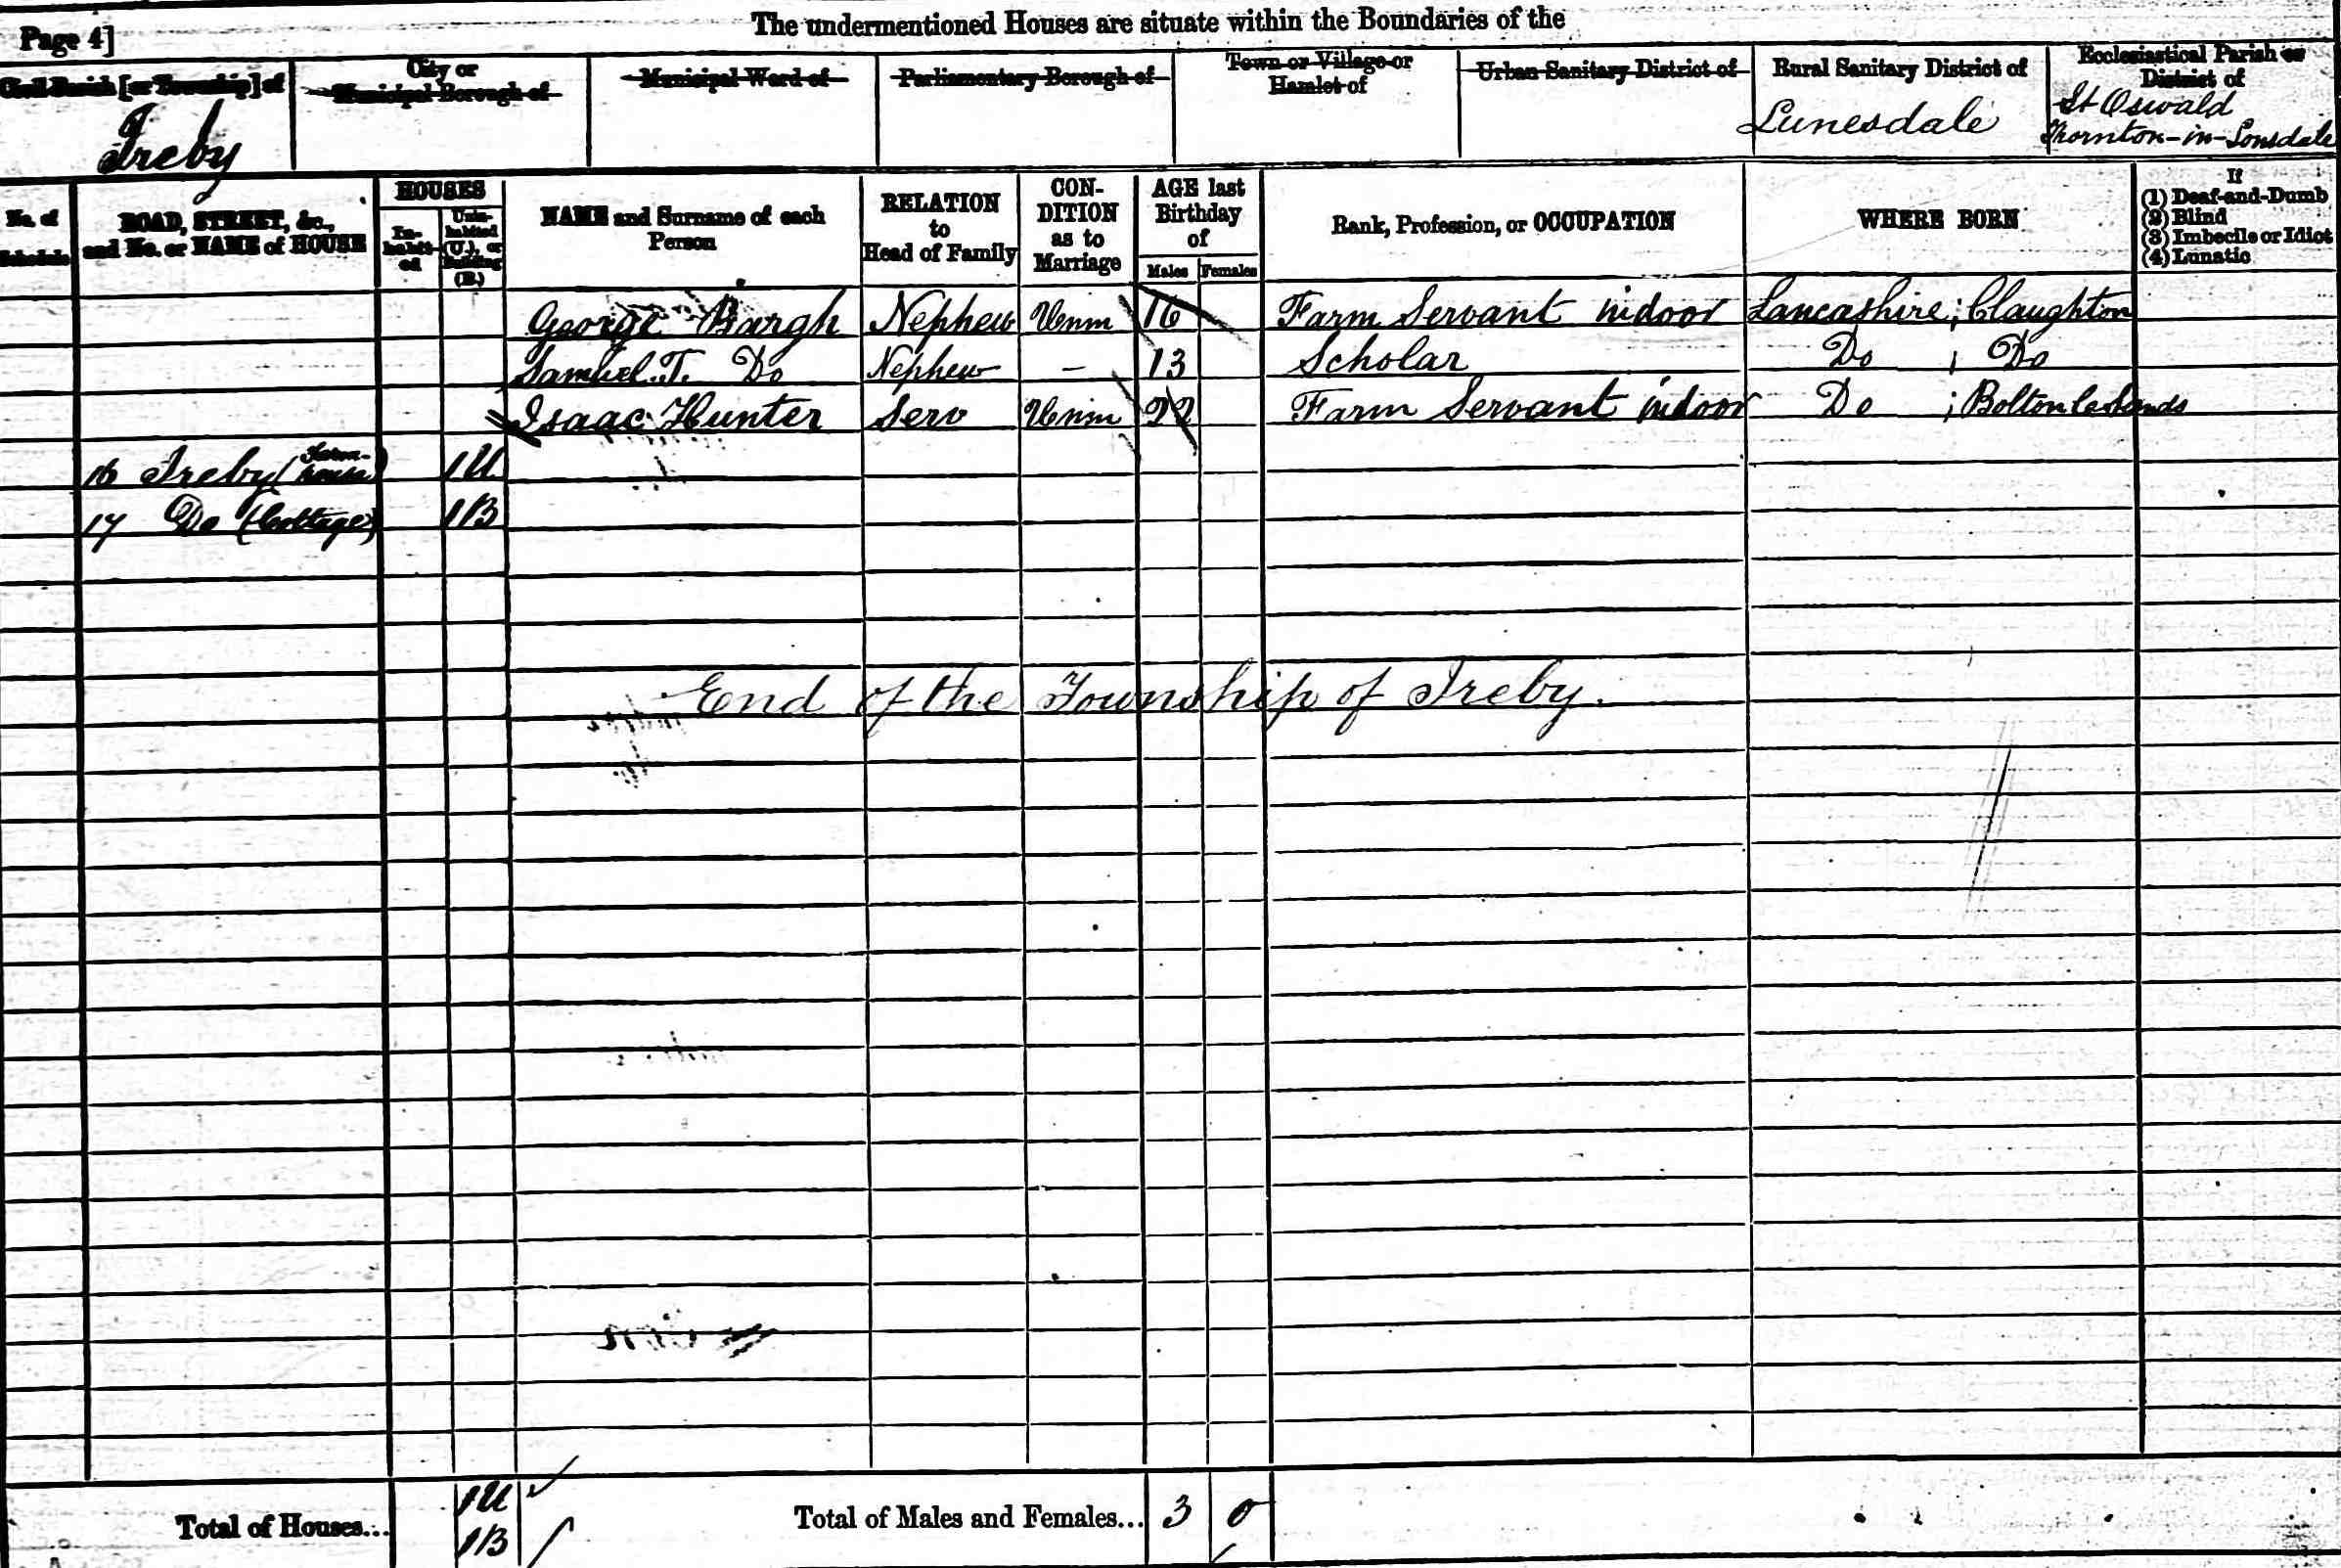 Page 4]
The undermentioned Houses are situate within the Boundaries of the
Civil Parish [or Township] of
City or
Municipal Borough of
Municipal Ward of
Parliamentary Borough of
Town or Village or
Hamlet of
Urban Sanitary District of
Rural Sanitary District of
Ecclesiastical Parish or
District of
Ireby
Lunesdale
St Oswald
Thornton-in-Lonsdale
No. of
Schedule
ROAD, STREET, &c.,
and No. or NAME of HOUSE
HOUSES
In-
habit-
ed
Unin-
habited
(U.), or
Building
(B.)
NAME and Surname of each
Person
RELATION
to
Head of Family
CON-
DITION
as to
Marriage
AGE last
Birthday
of
Males Females
Rank, Profession, or OCCUPATION
WHERE BORN
If
(1) Deaf-and-Dumb
(2) Blind
(3) Imbecile or Idiot
(4) Lunatic
George Bargh Nephew Unm 16 Farm Servant indoor Lancashire; Claughton
Samuel. T. Do Nephew - 13 Scholar Do ; Do
Isaac Hunter Serv Unm 22 Farm Servant indoor Do ; Bolton le Sands
16 Ireby (Farm-house) 1U
17 Do (Cottage) 1B
End of the Township of Ireby.
Total of Houses... 1U
1B
Total of Males and Females... 3 0